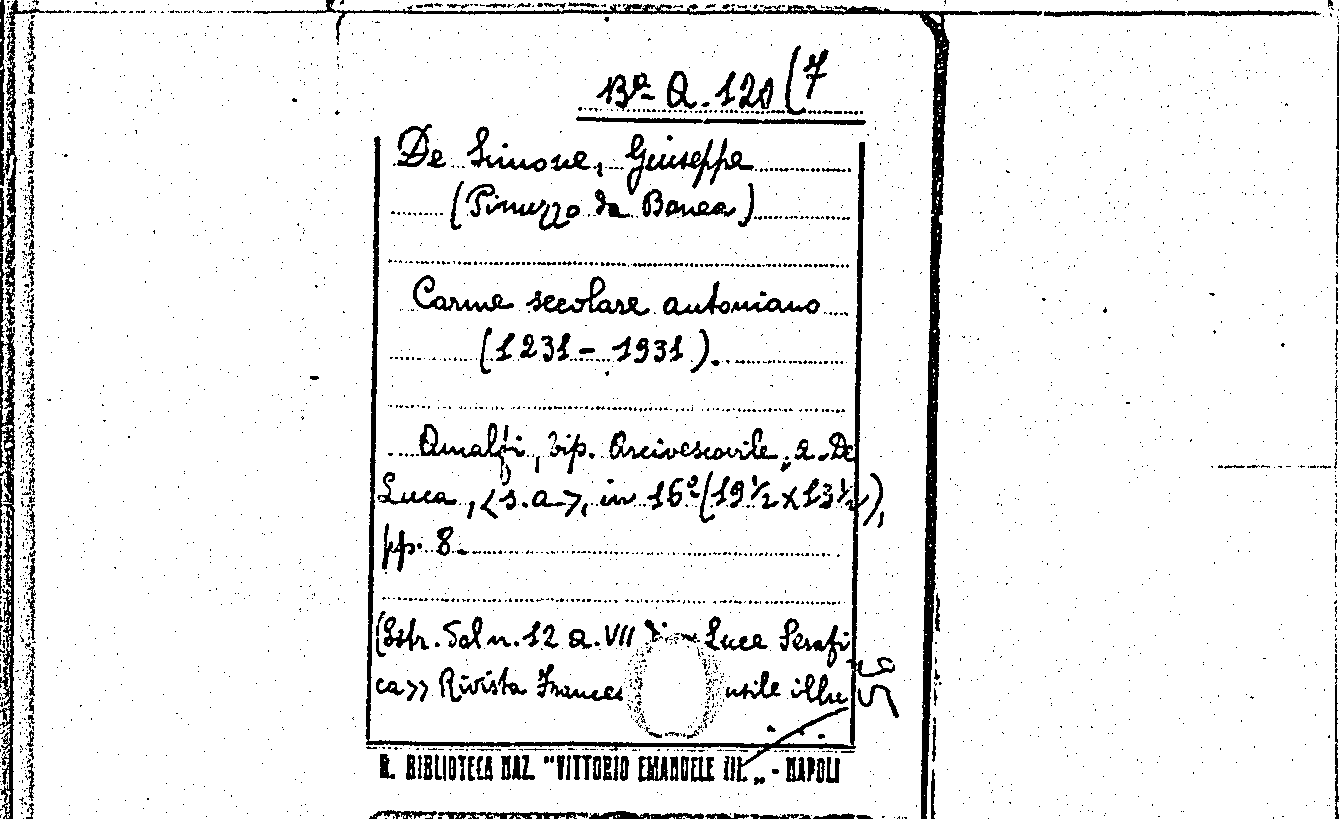 Bª Q. 120 (7
De Simone, Giuseppe
(Pinuzzo da Banea)
Carme secolare antoniano
(1231 - 1931).
Amalfi, Tip. Arcivescovile, a. De
Luca, <s.a>, in 16º (19 ½ x 13 ½),
pp. 8.
(Estr. Dal n. 12 a. VII Luce Serafi
ca>> Rivista illu
95
R. BIBLIOTECA NAZ. "VITTORIO EMANUELE III„ - NAPOLI